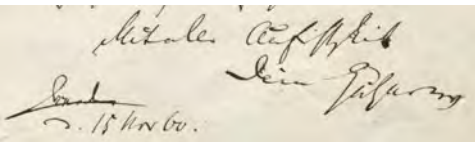 Mit alter Aufrichtigkeit
Dein
London
d. 15 Nov 60.